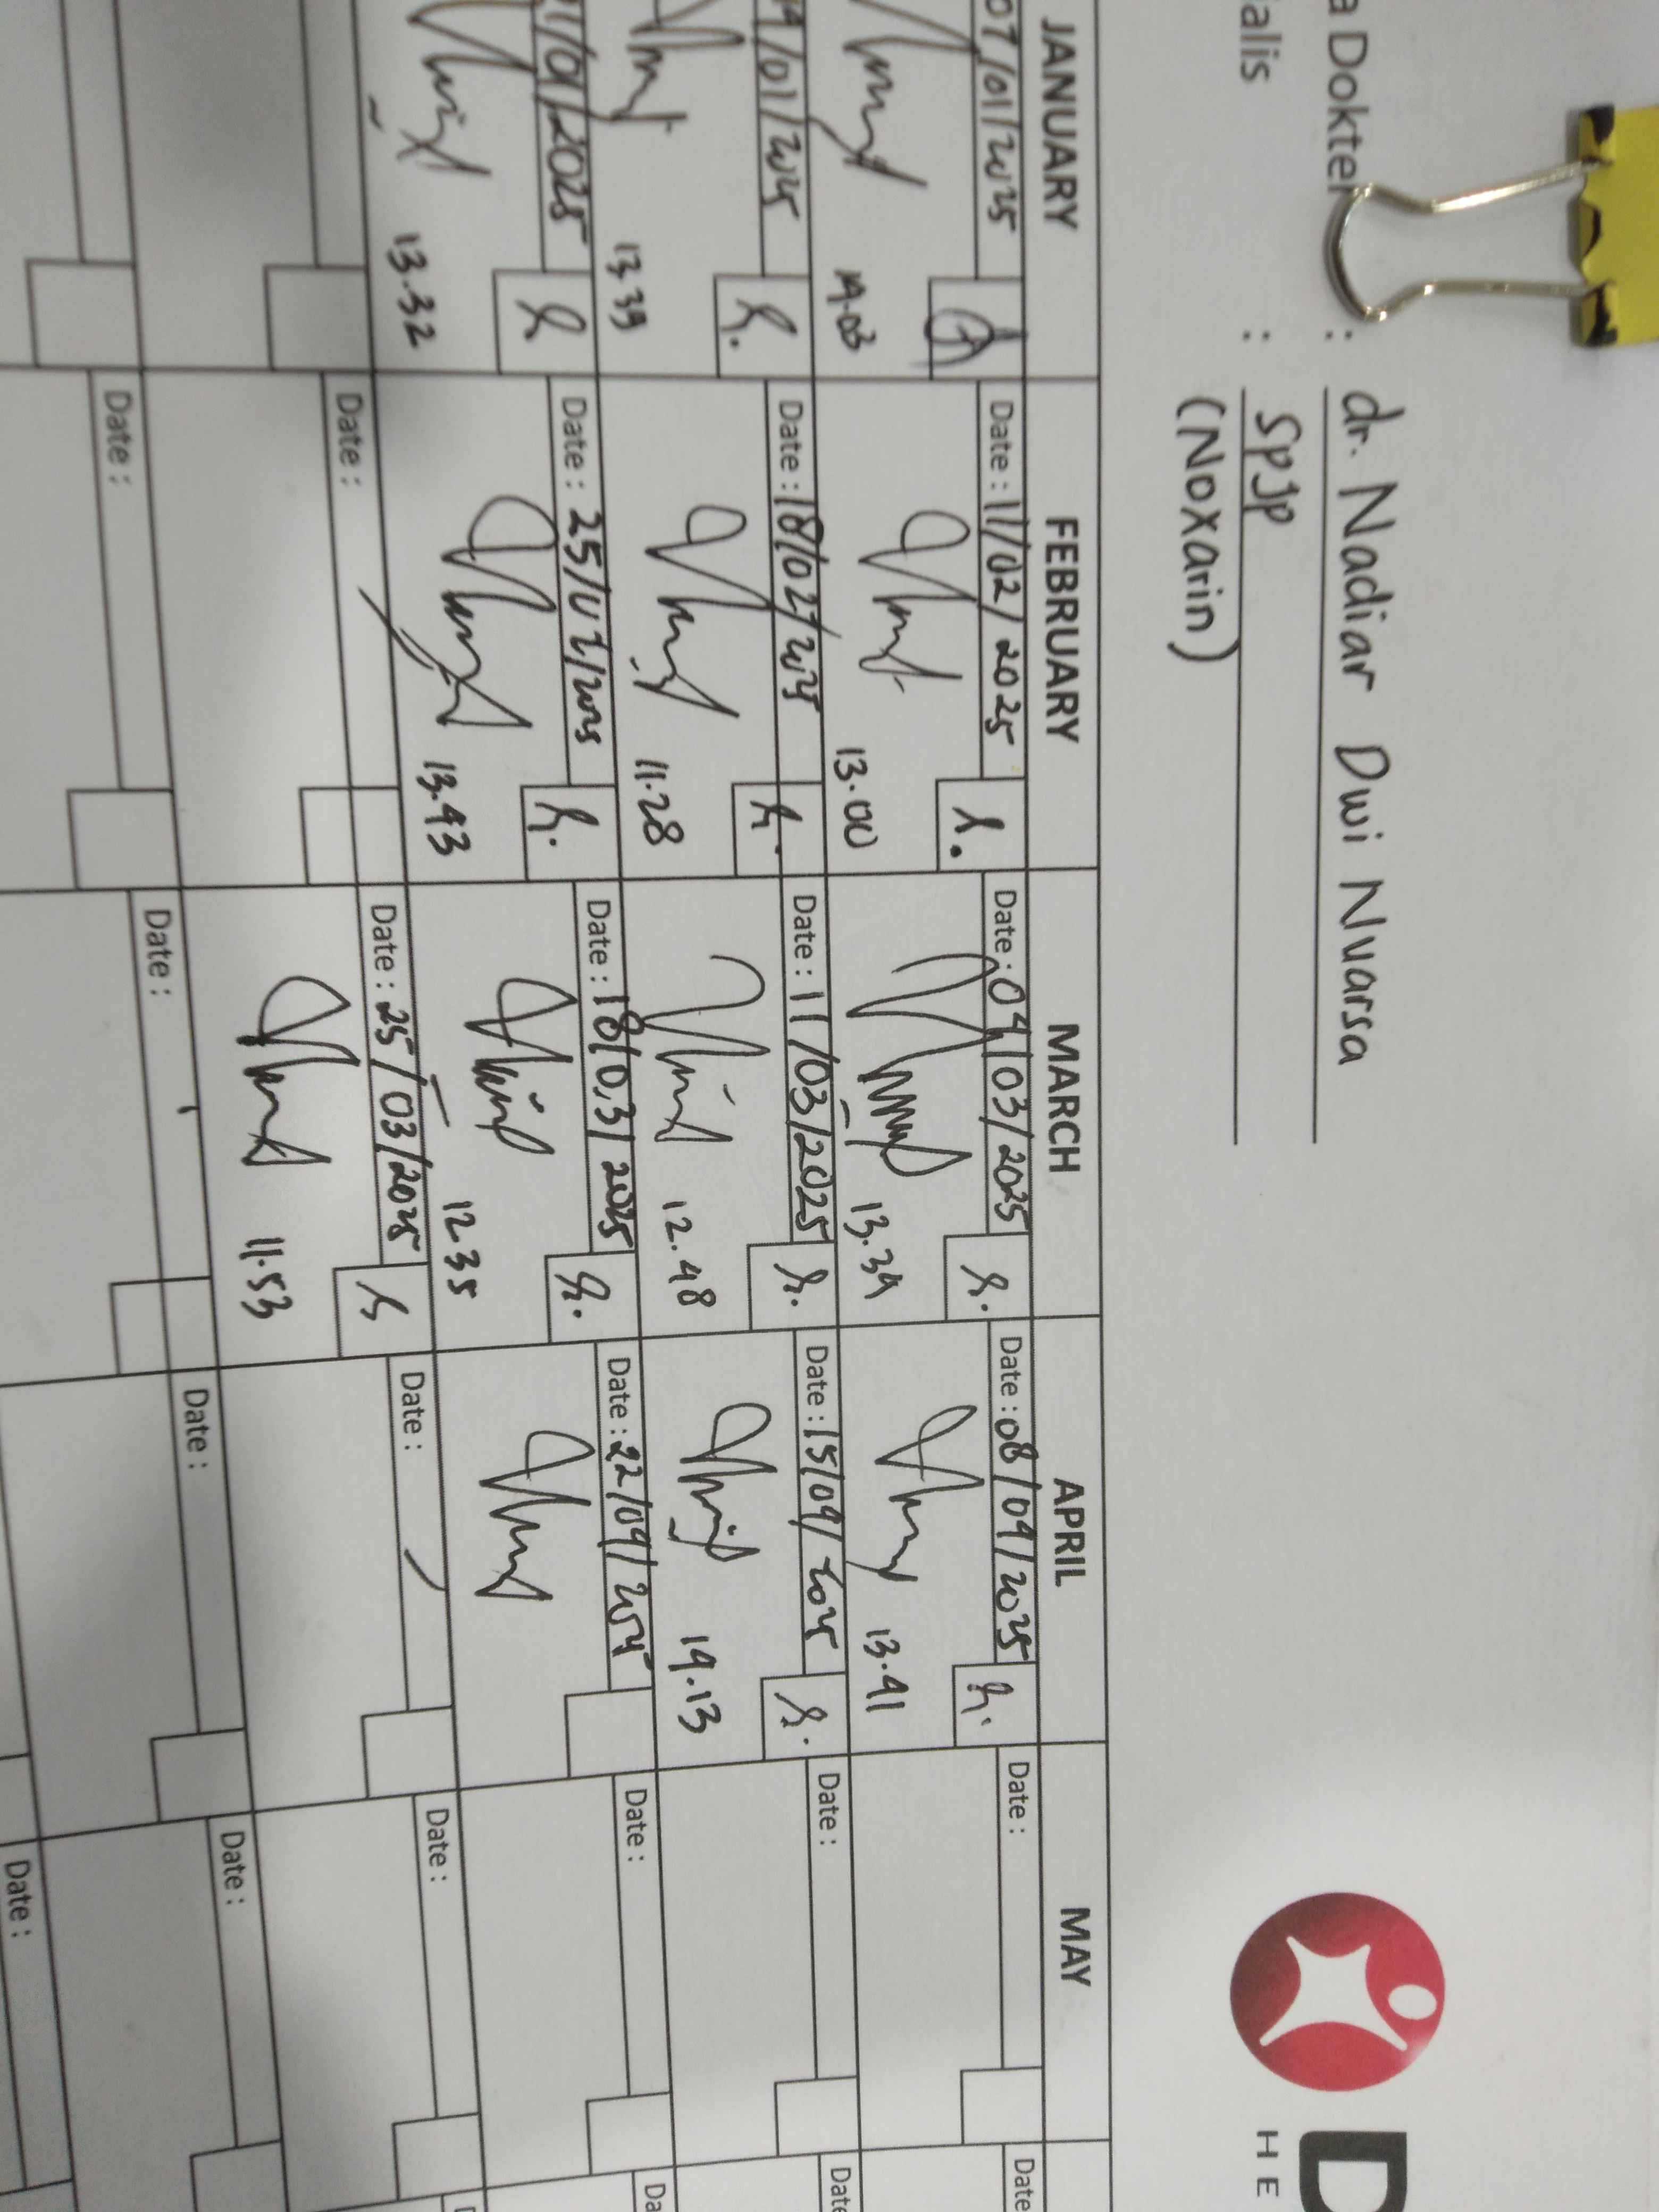 a Dokter : dr. Nadiar Dwi Nuarsa
alis : SpJP
(Noxarin)
D
HE
JANUARY FEBRUARY MARCH APRIL MAY
07/01/2025 Date : 11/02/2025 Date : 04/03/2025 Date : 08/04/2025 Date : Date
14.03 13.00 13.34 13.41
/01/2025 Date : 18/02/2025 Date : 11/03/2025 Date : 15/04/2025 Date : Date
13.39 11.28 12.48 14.13
/01/2025 Date : 25/02/2025 Date : 18/03/2025 Date : 22/04/2025 Date : Da
13.32 13.43 12.35
Date : Date : 25/03/2025 Date : Date : D
11.53
Date : Date : Date : Date :
Date :